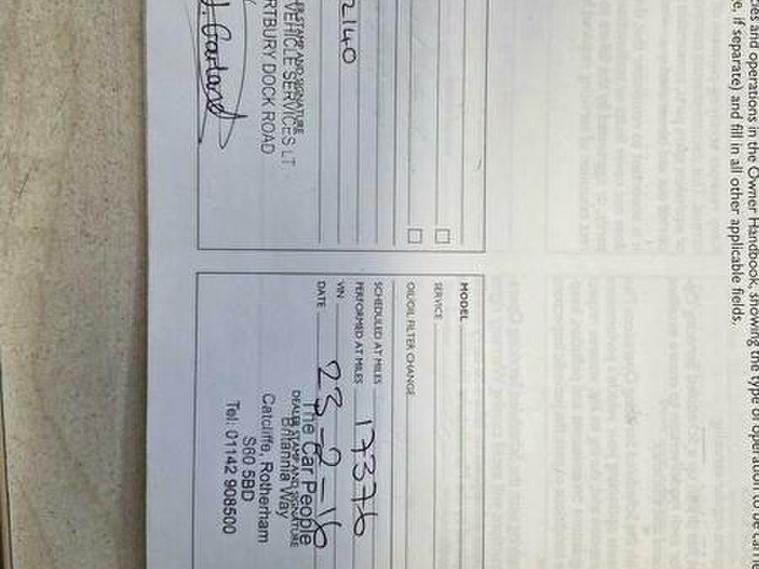 cies and operations in the Owner Handbook, showing the type of operation to be
e, if separate) and fill in all other applicable fields.
2140
STAMP AND SIGNATURE
VEHICLE SERVICES LT
RTBURY DOCK ROAD
J. Garland
MODEL
SERVICE
OIL/OIL FILTER CHANGE
SCHEDULED AT MILES
PERFORMED AT MILES 17376
VIN
DATE 23-2-16
The Car People
DEALER STAMP AND SIGNATURE
Britannia Way
Catcliffe, Rotherham
S60 5BD
Tel: 01142 908500